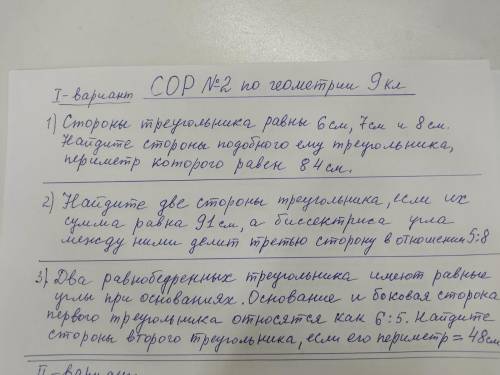 I-вариант СОР №2 по геометрии 9 кл
1) Стороны треугольника равны 6 см, 7 см и 8 см.
Найдите стороны подобного ему треугольника,
периметр которого равен 84 см.
2) Найдите две стороны треугольника, если их
сумма равна 91 см, а биссектриса угла
между ними делит третью сторону в отношении 5:8
3) Два равнобедренных треугольника имеют равные
углы при основаниях. Основание и боковая сторона
первого треугольника относятся как 6:5. Найдите
стороны второго треугольника, если его периметр = 48 см
II-вариант